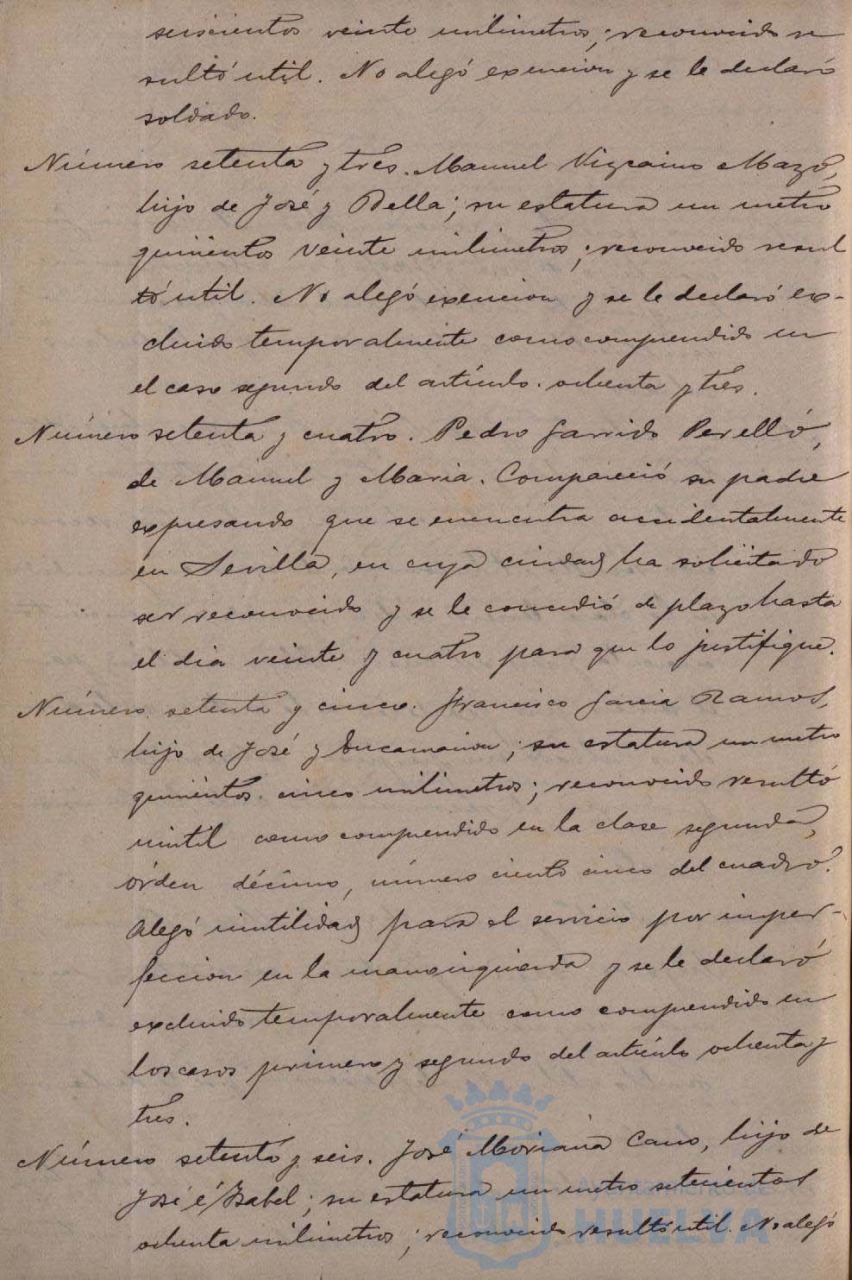 seiscientos veinte milimetros; reconocido re
sultó util. No alegó exencion y se le declaró
soldado.
Número setenta y tres. Manuel Vizcaino Mazo,
hijo de José y Bella; su estatura un metro
quinientos veinte milimetros; reconocido resul
tó util. No alegó exencion y se le declaró ex-
cluido temporalmente como comprendido en
el caso segundo del artículo ochenta y tres.
Número setenta y cuatro. Pedro Garrido Perelló,
de Manuel y Maria. Compareció su padre
expresando que se encuentra accidentalmente
en Sevilla, en cuya ciudad ha solicitado
ser reconocido y se le concedió de plazo hasta
el dia veinte y cuatro para que lo justifique.
Número setenta y cinco. Francisco Garcia Ramos,
hijo de José y Encarnacion; su estatura un metro
quinientos cinco milimetros; reconocido resultó
inutil como comprendido en la clase segunda,
órden décimo, número ciento cinco del cuadro.
Alegó inutilidad para el servicio por imper-
feccion en la mano izquierda y se le declaró
excluido temporalmente como comprendido en
los casos primero y segundo del artículo ochenta y
tres.
Número setenta y seis. José Moriana Cano, hijo de
José é Isabel; su estatura un metro setecientos
ochenta milimetros; reconocido resultó util. No alegó
Ayuntamiento de
HUELVA